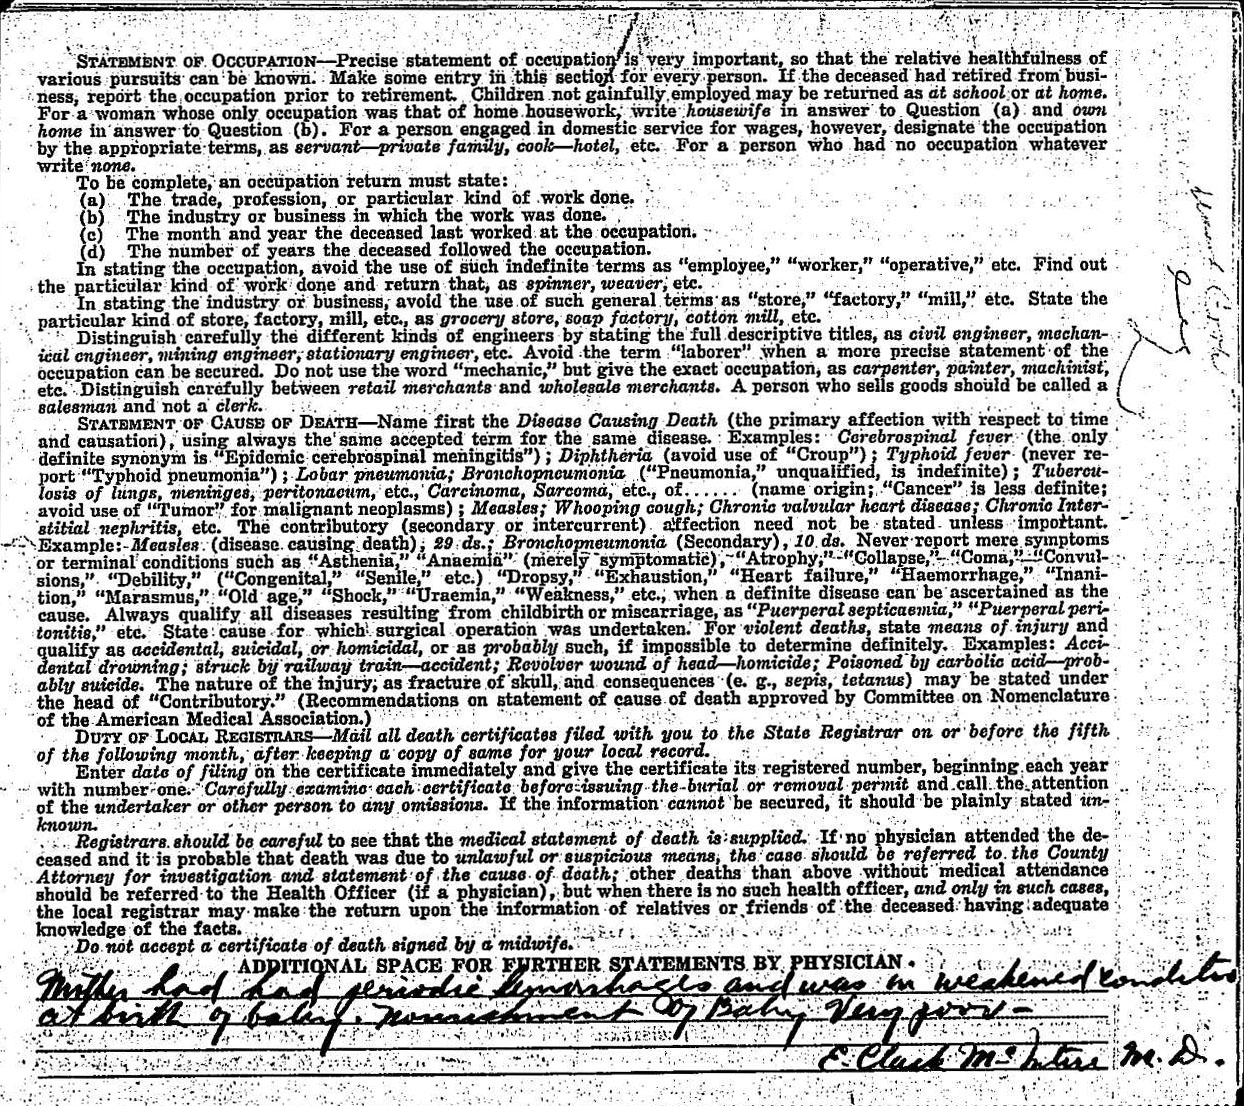 STATEMENT OF OCCUPATION—Precise statement of occupation is very important, so that the relative healthfulness of
various pursuits can be known. Make some entry in this section for every person. If the deceased had retired from busi-
ness, report the occupation prior to retirement. Children not gainfully employed may be returned as at school or at home.
For a woman whose only occupation was that of home housework, write housewife in answer to Question (a) and own
home in answer to Question (b). For a person engaged in domestic service for wages, however, designate the occupation
by the appropriate terms, as servant—private family, cook—hotel, etc. For a person who had no occupation whatever
write none.
To be complete, an occupation return must state:
(a) The trade, profession, or particular kind of work done.
(b) The industry or business in which the work was done.
(c) The month and year the deceased last worked at the occupation.
(d) The number of years the deceased followed the occupation.
In stating the occupation, avoid the use of such indefinite terms as "employee," "worker," "operative," etc. Find out
the particular kind of work done and return that, as spinner, weaver, etc.
In stating the industry or business, avoid the use of such general terms as "store," "factory," "mill," etc. State the
particular kind of store, factory, mill, etc., as grocery store, soap factory, cotton mill, etc.
Distinguish carefully the different kinds of engineers by stating the full descriptive titles, as civil engineer, mechan-
ical engineer, mining engineer, stationary engineer, etc. Avoid the term "laborer" when a more precise statement of the
occupation can be secured. Do not use the word "mechanic," but give the exact occupation, as carpenter, painter, machinist,
etc. Distinguish carefully between retail merchants and wholesale merchants. A person who sells goods should be called a
salesman and not a clerk.
STATEMENT OF CAUSE OF DEATH—Name first the Disease Causing Death (the primary affection with respect to time
and causation), using always the same accepted term for the same disease. Examples: Cerebrospinal fever (the only
definite synonym is "Epidemic cerebrospinal meningitis"); Diphtheria (avoid use of "Croup"); Typhoid fever (never re-
port "Typhoid pneumonia"); Lobar pneumonia; Bronchopneumonia ("Pneumonia," unqualified, is indefinite); Tubercu-
losis of lungs, meninges, peritonaeum, etc., Carcinoma, Sarcoma, etc., of...... (name origin; "Cancer" is less definite;
avoid use of "Tumor" for malignant neoplasms); Measles; Whooping cough; Chronic valvular heart disease; Chronic Inter-
stitial nephritis, etc. The contributory (secondary or intercurrent) affection need not be stated unless important.
Example: Measles (disease causing death), 29 ds.; Bronchopneumonia (Secondary), 10 ds. Never report mere symptoms
or terminal conditions such as "Asthenia," "Anaemia" (merely symptomatic), "Atrophy," "Collapse," "Coma," "Convul-
sions," "Debility," ("Congenital," "Senile," etc.) "Dropsy," "Exhaustion," "Heart failure," "Haemorrhage," "Inani-
tion," "Marasmus," "Old age," "Shock," "Uraemia," "Weakness," etc., when a definite disease can be ascertained as the
cause. Always qualify all diseases resulting from childbirth or miscarriage, as "Puerperal septicaemia," "Puerperal peri-
tonitis," etc. State cause for which surgical operation was undertaken. For violent deaths, state means of injury and
qualify as accidental, suicidal, or homicidal, or as probably such, if impossible to determine definitely. Examples: Acci-
dental drowning; struck by railway train—accident; Revolver wound of head—homicide; Poisoned by carbolic acid—prob-
ably suicide. The nature of the injury, as fracture of skull, and consequences (e. g., sepis, tetanus) may be stated under
the head of "Contributory." (Recommendations on statement of cause of death approved by Committee on Nomenclature
of the American Medical Association.)
DUTY OF LOCAL REGISTRARS—Mail all death certificates filed with you to the State Registrar on or before the fifth
of the following month, after keeping a copy of same for your local record.
Enter date of filing on the certificate immediately and give the certificate its registered number, beginning each year
with number one. Carefully examine each certificate before issuing the burial or removal permit and call the attention
of the undertaker or other person to any omissions. If the information cannot be secured, it should be plainly stated un-
known.
Registrars should be careful to see that the medical statement of death is supplied. If no physician attended the de-
ceased and it is probable that death was due to unlawful or suspicious means, the case should be referred to the County
Attorney for investigation and statement of the cause of death; other deaths than above without medical attendance
should be referred to the Health Officer (if a physician), but when there is no such health officer, and only in such cases,
the local registrar may make the return upon the information of relatives or friends of the deceased having adequate
knowledge of the facts.
Do not accept a certificate of death signed by a midwife.
ADDITIONAL SPACE FOR FURTHER STATEMENTS BY PHYSICIAN.
Mother had had periodic hemorrhages and was in weakened condition
at birth of baby. Nourishment of Baby Very poor—
E. Clark McIntire M. D.